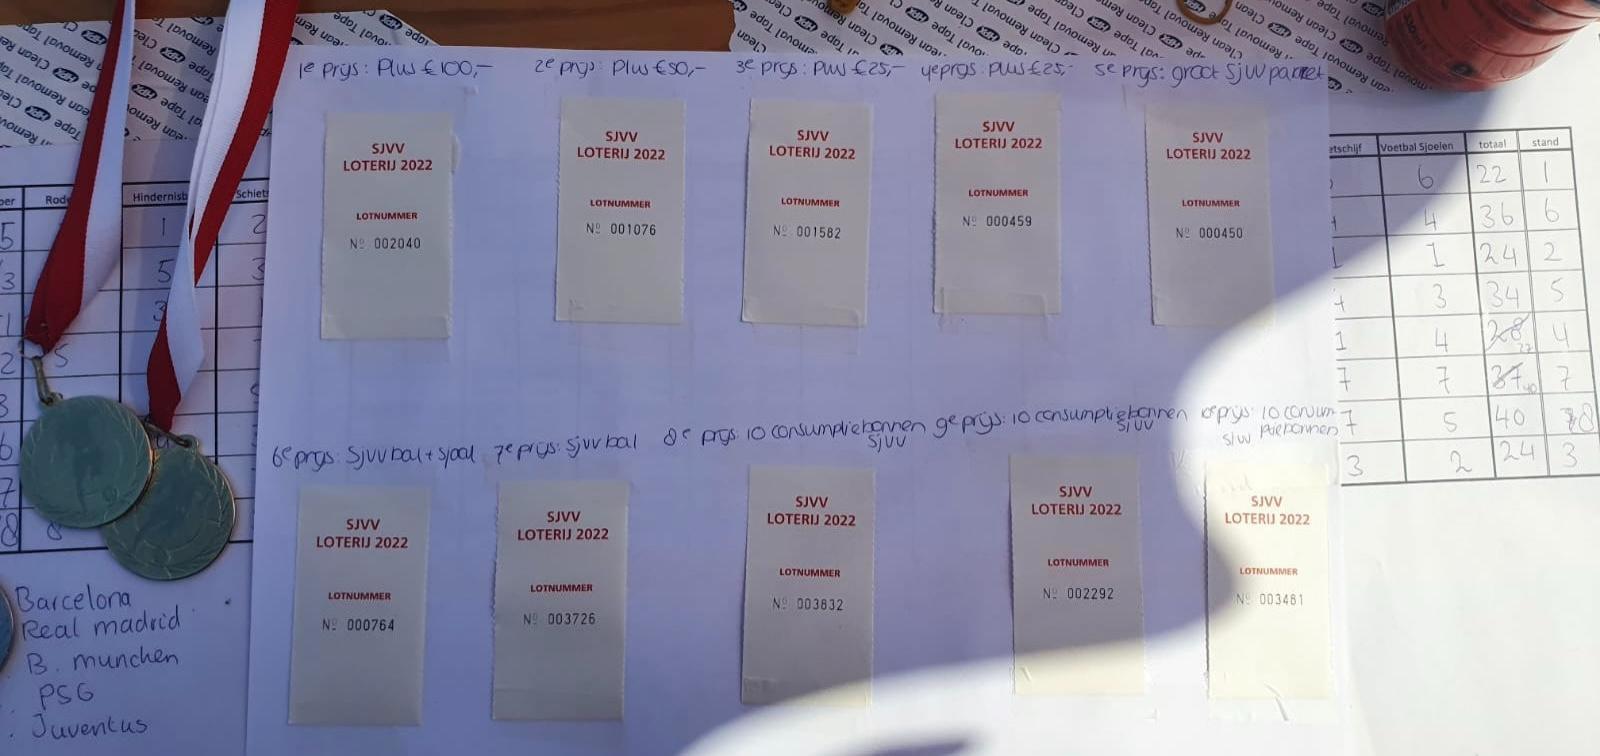 1e prijs: Plus €100,-
2e prijs: Plus €50,-
3e prijs: Plus €25,-
4e prijs: Plus €25,-
5e prijs: groot SJVV pakket
SJVV
LOTERIJ 2022
LOTNUMMER
Nº 002040
SJVV
LOTERIJ 2022
LOTNUMMER
Nº 001076
SJVV
LOTERIJ 2022
LOTNUMMER
Nº 001582
SJVV
LOTERIJ 2022
LOTNUMMER
Nº 000459
SJVV
LOTERIJ 2022
LOTNUMMER
Nº 000450
6e prijs: SJVV bal + sjaal
7e prijs: SJVV bal
8e prijs: 10 consumptiebonnen
SJVV
9e prijs: 10 consumptiebonnen
SJVV
10e prijs: 10 consum
SJVV ptiebonnen
SJVV
LOTERIJ 2022
LOTNUMMER
Nº 000764
SJVV
LOTERIJ 2022
LOTNUMMER
Nº 003726
SJVV
LOTERIJ 2022
LOTNUMMER
Nº 003832
SJVV
LOTERIJ 2022
LOTNUMMER
Nº 002292
SJVV
LOTERIJ 2022
LOTNUMMER
Nº 003461
Voetbal Sjoelen totaal stand
6 22 1
4 36 6
1 24 2
3 34 5
4 4
7 7
5 40 8
3 2 24 3
Barcelona
Real madrid
B. munchen
PSG
Juventus
Clean Removal Tape